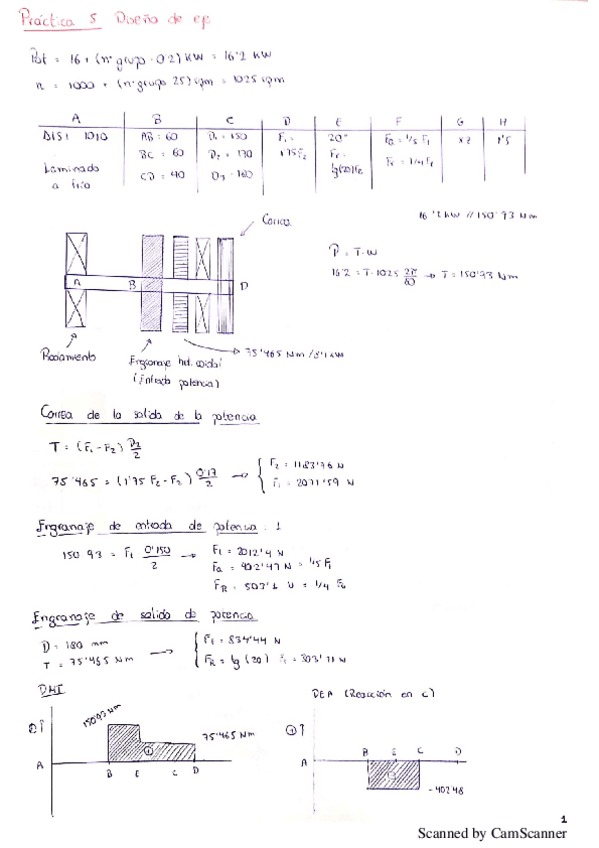 Práctica 5 Diseño de eje
Pot = 16 + (nº grupo · 0'2) kW = 16'2 kW
n = 1000 + (nº grupo 25) rpm = 1025 rpm
A B C D E F G H
AISI 1010 AB = 60 D₁ = 150 F₁ = 20° Fa = 1/5 F₁ x2 1'5
BC = 60 1'75F₂ Fr =
Laminado tg(20)Ft Fr = 1/4 Ft
a frío CD = 40
16'2 kW // 150'93 Nm
Correa
P = T·W
16'2 = T·1025 2π/60 → T = 150'93 Nm
A B D
75'465 Nm / 8'1 kW
Rodamiento
Engranaje helicoidal
(Entrada potencia)
Correa de la salida de la potencia
T = (F₁ - F₂) D₂/2
75'465 = (1'75 F₂ - F₂) 0'17/2 → F₂ = 1183'76 N
F₁ = 2071'59 N
Engranaje de entrada de potencia: 1
150'93 = Ft 0'150/2 → Ft = 2012'4 N
Fa = 402'47 N = 1/5 Ft
FR = 503'1 N = 1/4 Ft
Engranaje de salida de potencia
D = 180 mm
T = 75'465 Nm → Ft = 834'44 N
FR = tg (20) Ft = 303'71 N
DMT
DEA (Reacción en C)
150'93 Nm
75'465 Nm
A B E C D
A B E C D
-402'48
1
Scanned by CamScanner